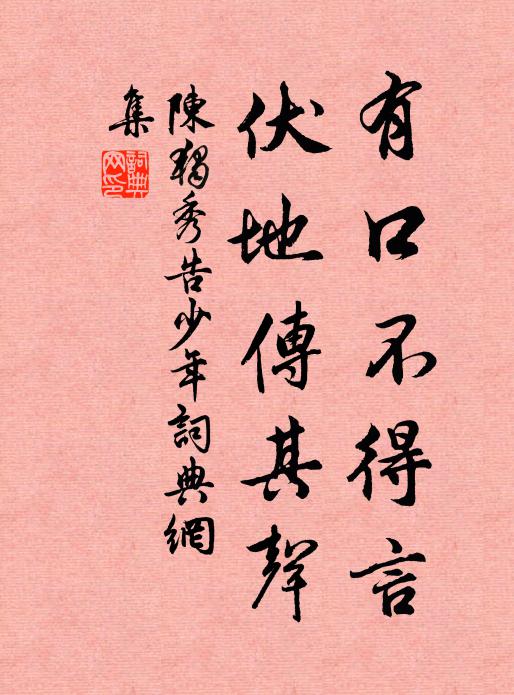 有口不得言
伏地傳其聲
陳獨秀告少年詞典網
集
詞典网印